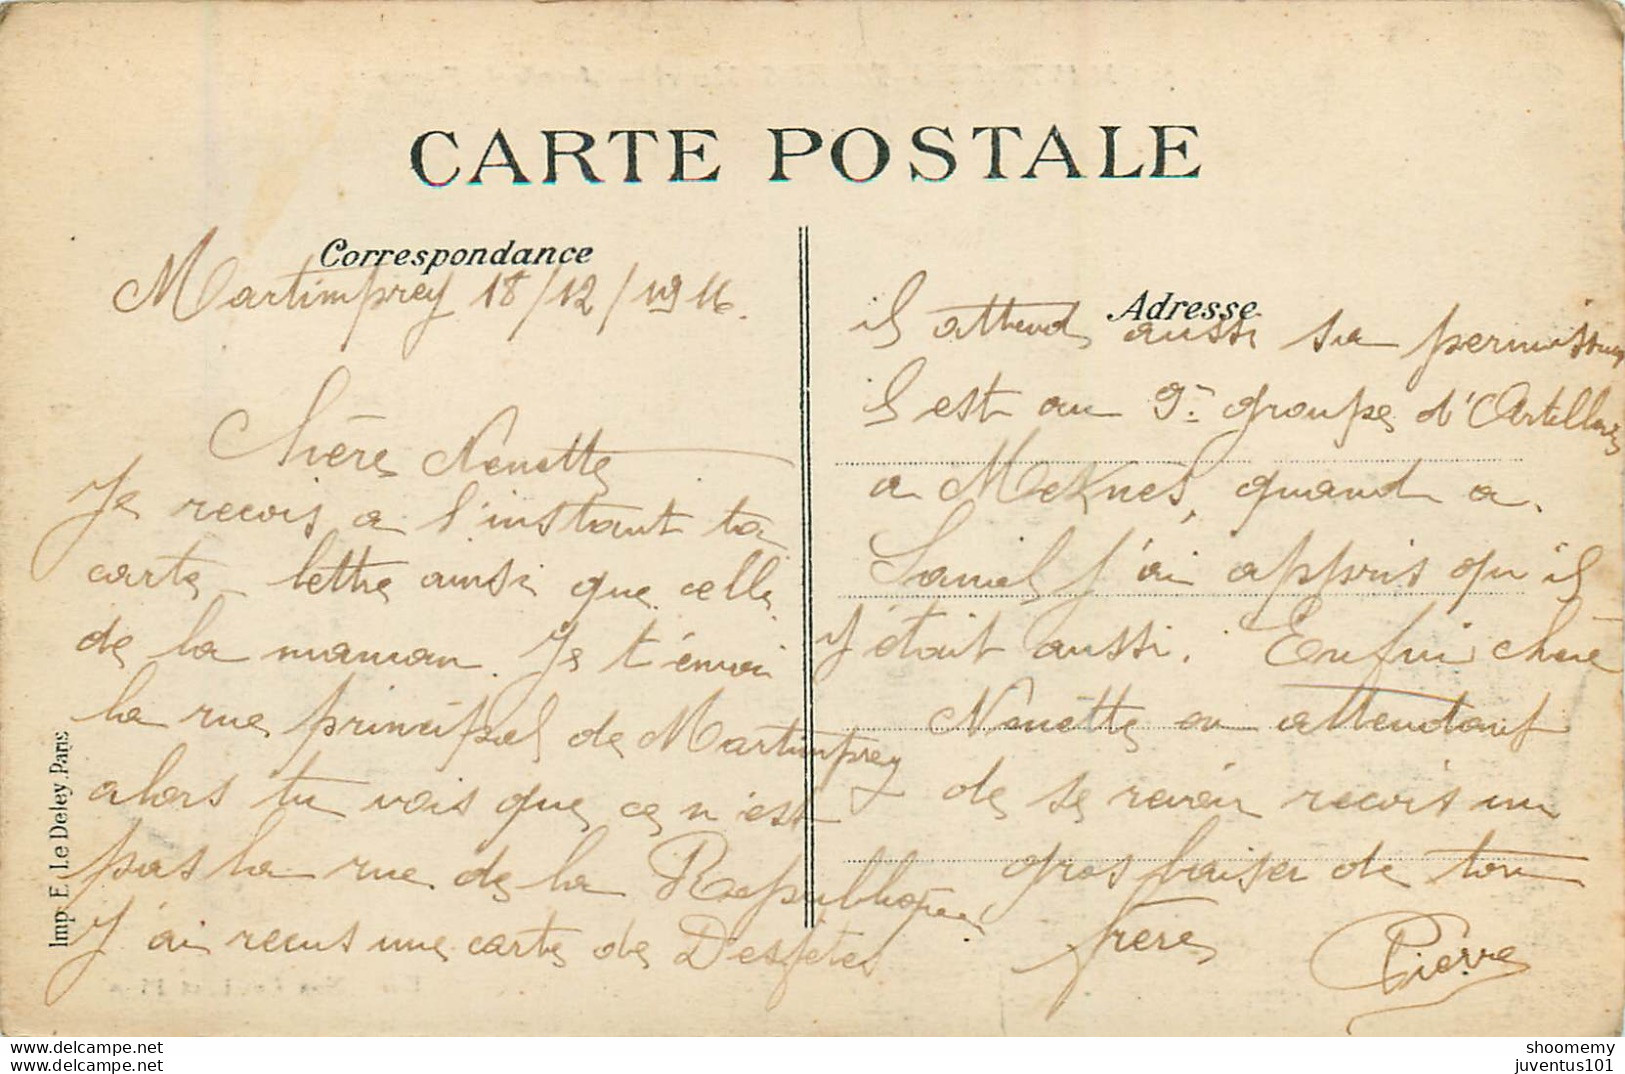 CARTE POSTALE
Correspondance
Martimprey 18/12/1916.
Chère Nenette
Je recois a l'instant ta
carte-lettre ainsi que celle
de la maman. Je t'envoi
la rue principal de Martimprey
alors tu vois que ce n'est
pas la rue de la Republique
J'ai recus une carte de Desfêtes
Adresse
il attend aussi sa permission
il est au 9e groupe d'Artillerie
a Meknes, quand a
Daniel j'ai appris qu'il
y était aussi. Enfin chère
Nenette en attendant
de se revoir recois un
gros baiser de ton
frère Pierre
Imp. E. Le Deley, Paris
shoomemy
juventus101